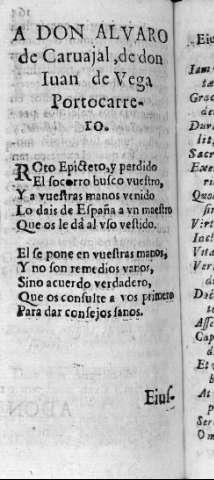 A DON ALVARO
de Caruajal, de don
Iuan de Vega
Portocarre-
ro.
ROto Epicteto, y perdido
El socorro busco vuestro,
Y a vuestras manos venido
Lo dais de España a vn maestro
Que os le dà al vso vestido.
El se pone en vuestras manos,
Y no son remedios vanos,
Sino acuerdo verdadero,
Que os consulte a vos primero
Para dar consejos sanos.
Eius-